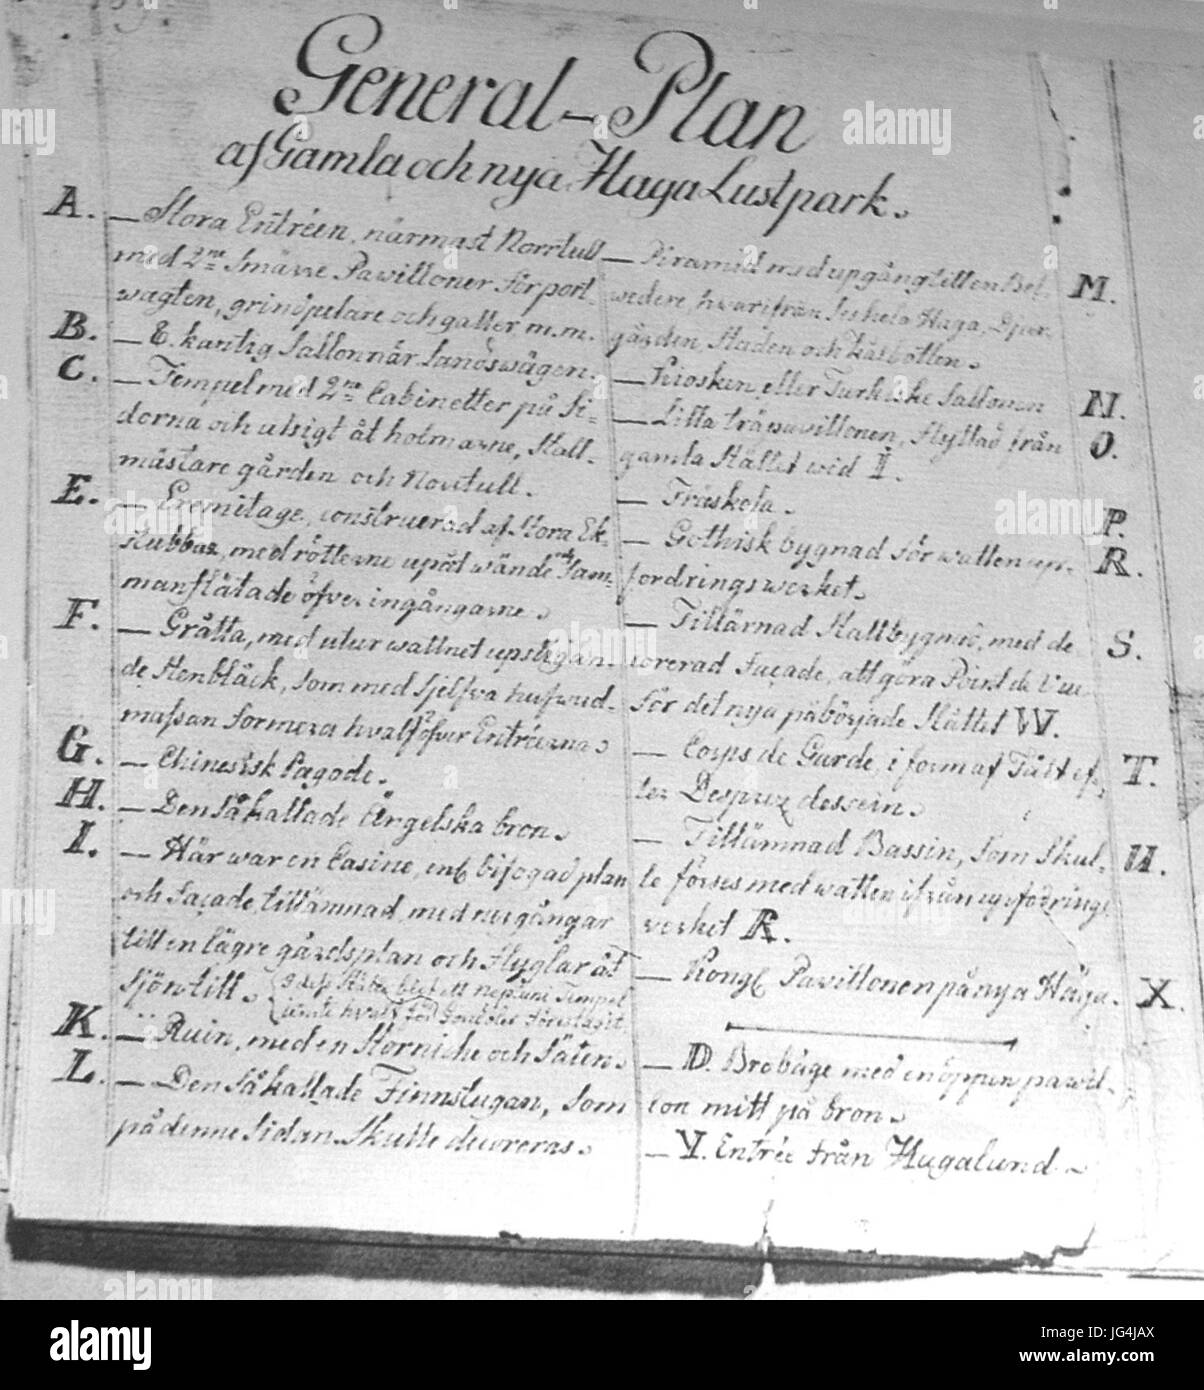 General-Plan
af Gamla och nya Haga Lustpark.
A. — Stora Entréen, närmast Norrtull
med 2ne Smärre Pawilloner för port-
wagten, grindpelare och galler m.m.
B. — 6. kantig Sallon när Landswägen.
C. — Tempel med 2ne Cabinetter på Si-
dorna och utsigt åt holmarne, Stall-
mästare gården och Norrtull.
E. — Eremitage, construerad af Stora Ek-
Stubbar, med rötterne upåt wände och Sam-
manflätade öfver ingångarne.
F. — Grålla, med utur wattnet upstigan-
de Stenbläck, som med sjelfva hufwud-
massan formera hvalf öfver Entréerna.
G. — Chinesisk Pagode.
H. — Den så kallade Ängelska bron.
I. — Här war en Casine, enl bifogad plan
och façade, tillämnad, med nergångar
till en lägre gårdsplan och flyglar åt
sjön till.
Tempel
K. — Ruin, med en Stor niche och Säten.
L. — Den så kallade Finnstugan, som
på denne sidan skulle decoreras.
— Piramid med upgång till en Bel- M.
wedere, hvarifrån Ses hela Haga, Djur-
gården, Staden och
— Kiosken eller Turkiske Sallonen N.
— Lilla träpawillonen, flyttad från O.
gamla Stället wid I.
— Träskola. P.
— Gothisk bygnad för watten up- R.
fordringswerket.
— Tillärnad Stallbygnad, med de- S.
corerad façade, att göra Point de Vue
för det nya påbörjade Slottet W.
— Corps de Garde, i form af Tält ef- T.
ter Desprez dessein.
— Tillämnad Bassin, som skul- U.
le förses med watten ifrån upfodrings
verket R.
— Kongl Pawillonen på nya Haga. X.
— D. Brobåge med en öppen pawil-
lon mitt på bron.
— Y. Entrée från Hagalund.
alamy
Image ID: JG4JAX
www.alamy.com